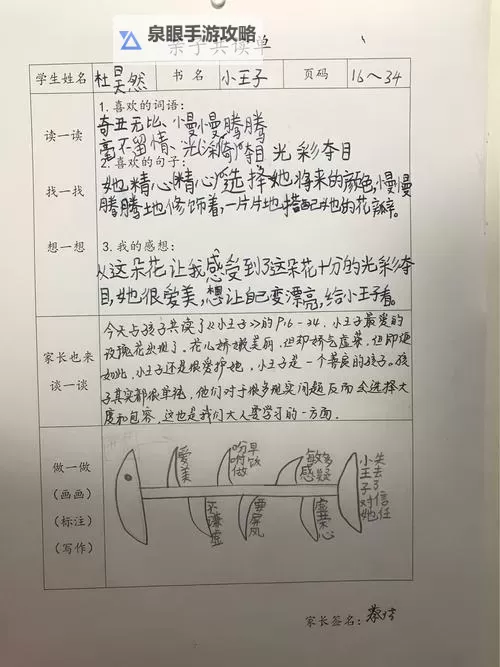 泉眼手游攻略
亲子共读单
学生姓名 杜昊然 书名 小王子 页码 16~34
读一读
1. 喜欢的词语:
奇丑无比、慢慢腾腾
毫不留情、光彩夺目 光彩夺目
找一找
2. 喜欢的句子:
她精心精心选择她将来的颜色,慢慢
腾腾地修饰着,一片片地搭配她的花瓣。
想一想
3. 我的感想:
从这朵花让我感受到了这朵花十分的光彩夺
目,她很爱美,想让自己变漂亮,给小王子看。
家长也来
谈一谈
今天与孩子共读了《小王子》的P16-34,小王子最爱的
玫瑰花出现了,花儿娇嫩美丽,但却骄傲虚荣,但即便
如此,小王子还是很爱护她,小王子是一个善良的孩子。孩
子其实都很单纯,他们对于很多现实问题反而会选择大
度和包容,这也是我们大人要学习的一方面.
做一做
(画画)
(标注)
(写作)
爱美
吩咐做早饭
敏感多疑
不谦虚
要屏风
虚荣心
小王子对她失去了信任
家长签名: